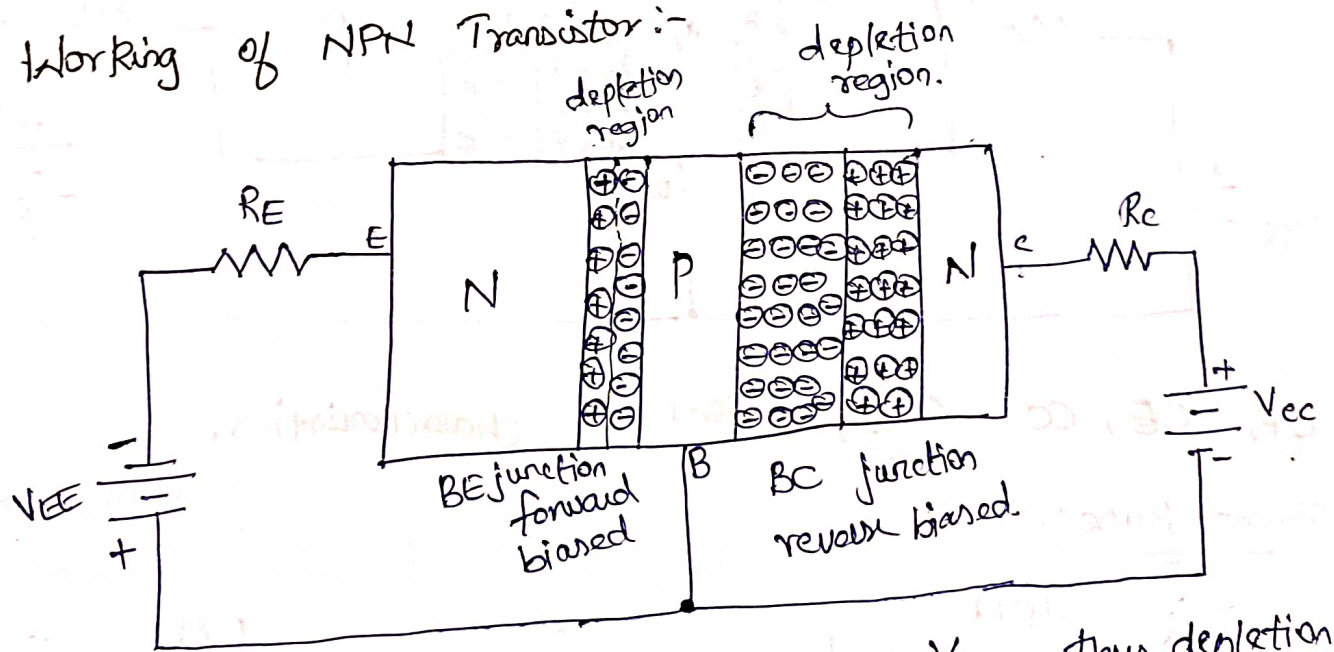 Working of NPN Transistor :-
depletion
region
depletion
region.
RE
E
N
P
N
C
RC
- VEE +
+ Vcc -
B
BE junction
forward
biased
BC junction
reverse biased.
thus depletion